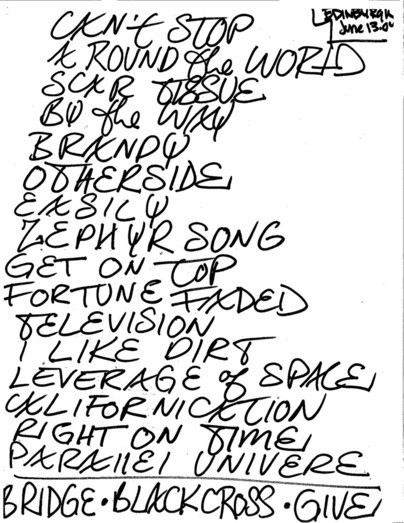 EDINBURGH
June 13.04
CAN't STOP
AROUND the WORLD
SCAR TISSUE
BY the WAY
BRANDY
OTHERSIDE
EASILY
ZEPHYR SONG
GET ON TOP
FORTUNE FADED
TELEVISION
I LIKE DIRT
LEVERAGE of SPACE
CALIFORNICATION
RIGHT ON TIME
PARAllEl UNIVERE
BRIDGE · BLACKCROSS · GIVE